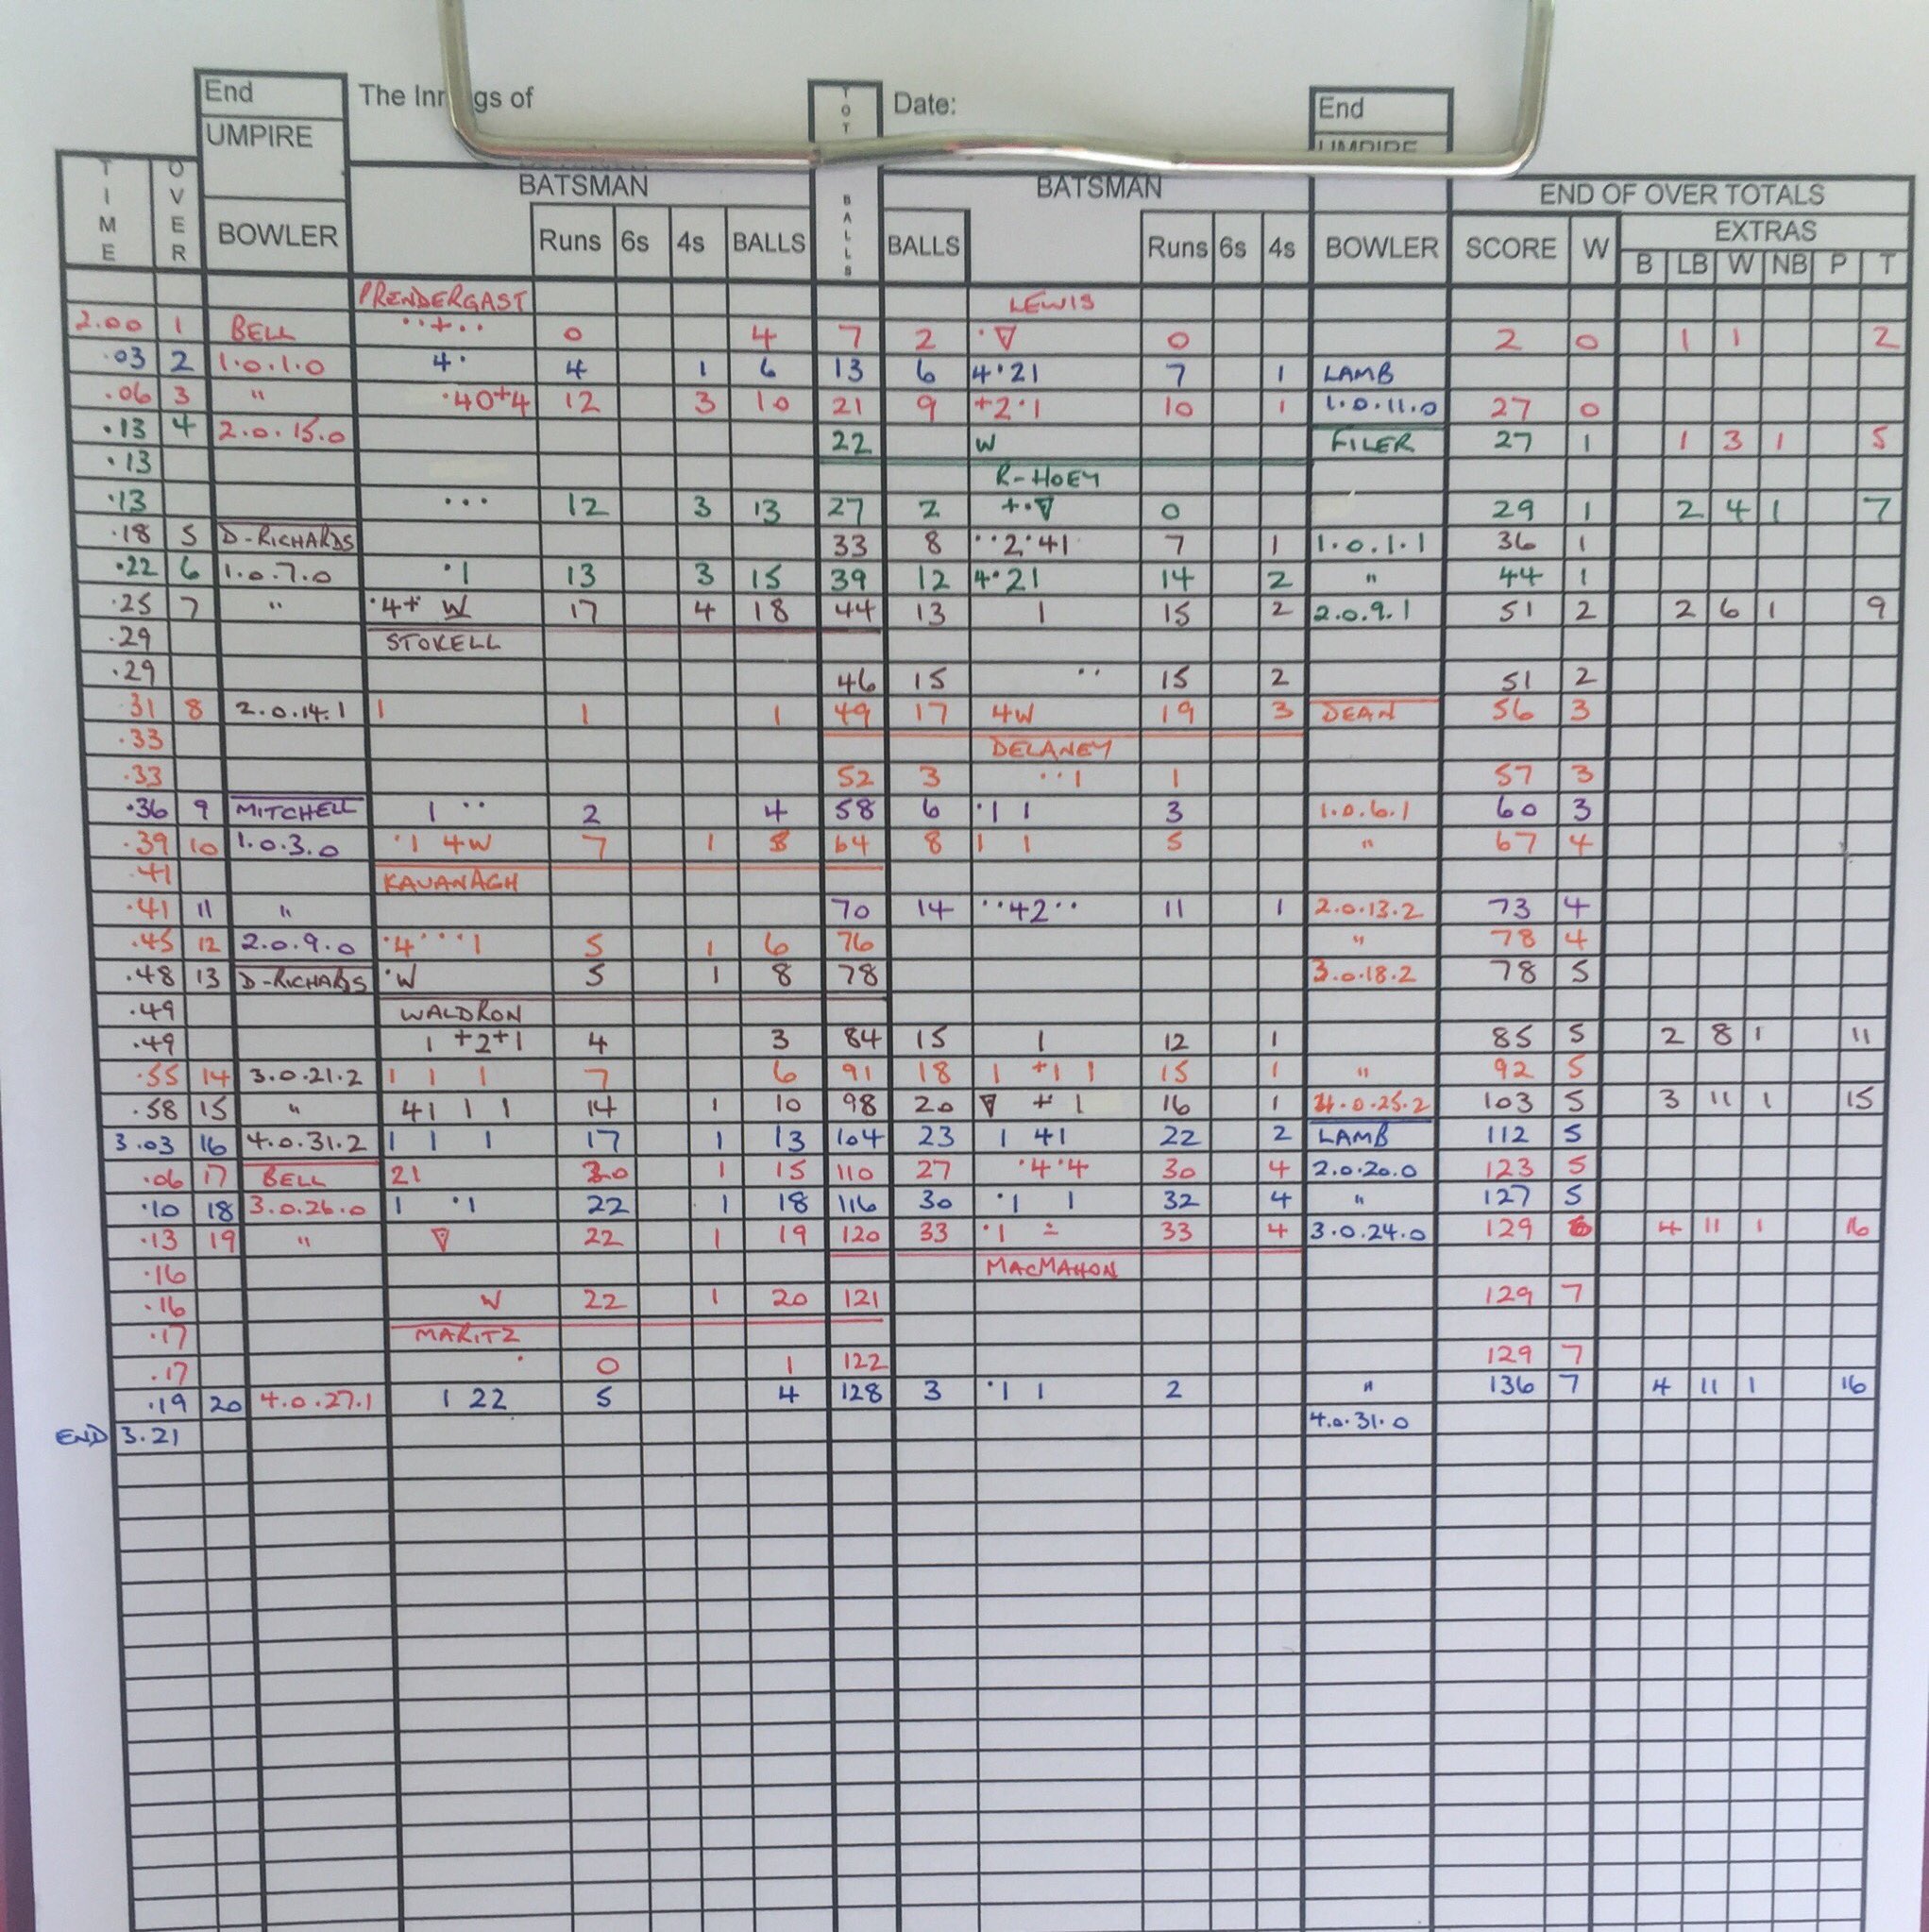 End The Inn gs of TOT Date: End
UMPIRE UMPIRE
TIME OVER BATSMAN BALLS BATSMAN END OF OVER TOTALS
BOWLER Runs 6s 4s BALLS BALLS Runs 6s 4s BOWLER SCORE W EXTRAS
B LB W NB P T
PRENDERGAST LEWIS
2.00 1 BELL ··+·· 0 4 7 2 ·▽ 0 2 0 1 1 2
.03 2 1.0.1.0 4· 4 1 6 13 6 4·21 7 1 LAMB
.06 3 " ·40+4 12 3 10 21 9 +2·1 10 1 1.0.11.0 27 0
.13 4 2.0.15.0 22 W FILER 27 1 1 3 1 5
.13 R-HOEY
.13 ··· 12 3 13 27 2 +·▽ 0 29 1 2 4 1 7
.18 5 D-RICHARDS 33 8 ··2·41 7 1 1.0.1.1 36 1
.22 6 1.0.7.0 ·1 13 3 15 39 12 4·21 14 2 " 44 1
.25 7 " ·4+ W 17 4 18 44 13 1 15 2 2.0.9.1 51 2 2 6 1 9
.29 STOKELL
.29 46 15 ·· 15 2 51 2
.31 8 2.0.14.1 1 1 1 49 17 4W 19 3 DEAN 56 3
.33 DELANEY
.33 52 3 ··1 1 57 3
.36 9 MITCHELL 1 ·· 2 4 58 6 ·1 1 3 1.0.6.1 60 3
.39 10 1.0.3.0 ·1 4W 7 1 8 64 8 1 1 5 " 67 4
.41 KAVANAGH
.41 11 " 70 14 ··42·· 11 1 2.0.13.2 73 4
.45 12 2.0.9.0 ·4···1 5 1 6 76 " 78 4
.48 13 D-RICHARDS ·W 5 1 8 78 3.0.18.2 78 5
.49 WALDRON
.49 1 +2+1 4 3 84 15 1 12 1 85 5 2 8 1 11
.55 14 3.0.21.2 1 1 1 7 6 91 18 1 +1 1 15 1 " 92 5
.58 15 " 41 1 1 14 1 10 98 20 ▽ + 1 16 1 4.0.25.2 103 5 3 11 1 15
3.03 16 4.0.31.2 1 1 1 17 1 13 104 23 1 41 22 2 LAMB 112 5
.06 17 BELL 21 20 1 15 110 27 ·4·4 30 4 2.0.20.0 123 5
.10 18 3.0.26.0 1 ·1 22 1 18 116 30 ·1 1 32 4 " 127 5
.13 19 " ▽ 22 1 19 120 33 ·1 33 4 3.0.24.0 129 6 4 11 1 16
.16 MACMAHON
.16 W 22 1 20 121 129 7
.17 MARITZ
.17 · 0 1 122 129 7
.19 20 4.0.27.1 1 22 5 4 128 3 ·1 1 2 " 136 7 4 11 1 16
END 3.21 4.0.31.0